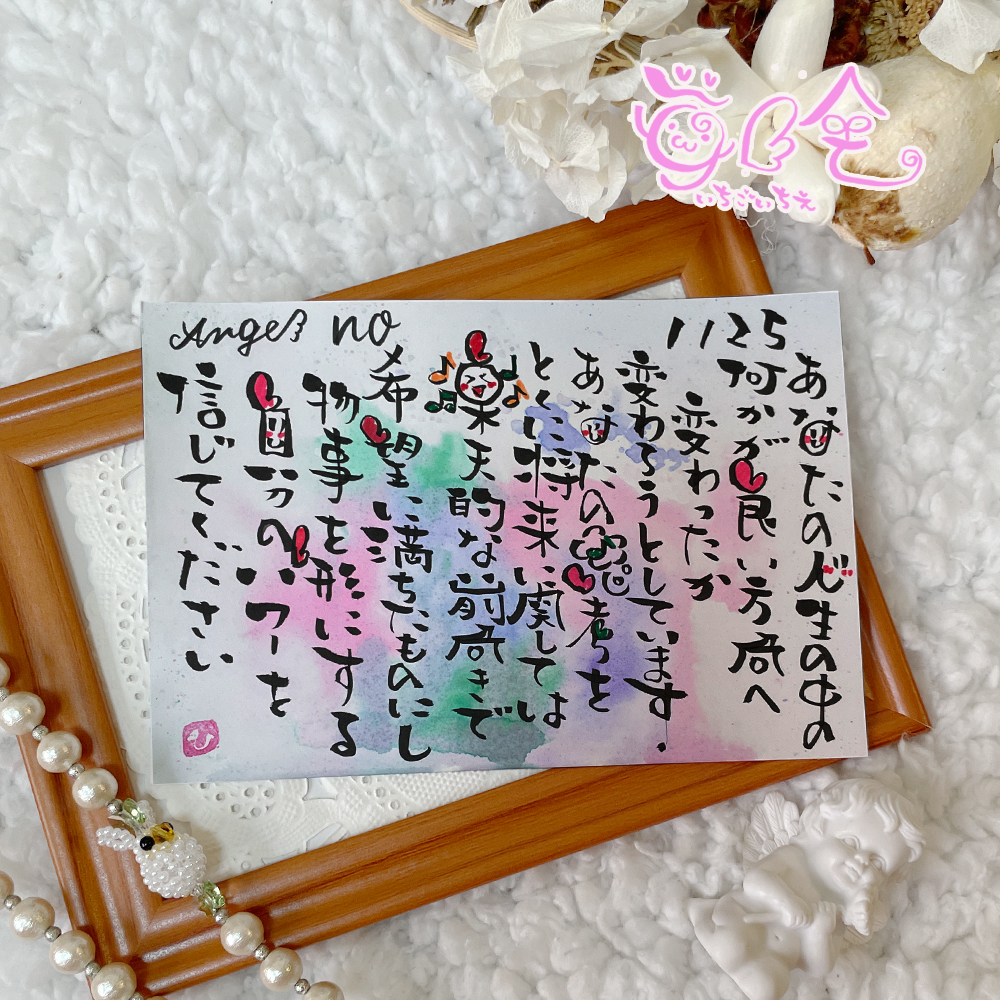 Angel no 1125
あなたの人生の中の
何かが良い方向へ
変わったか
変わろうとしています.
あなたの考えを
とくに将来に関しては
楽天的な前向きで
希望に満ちたものにし
物事を形にする
自分のパワーを
信じてください
いちごいちえ